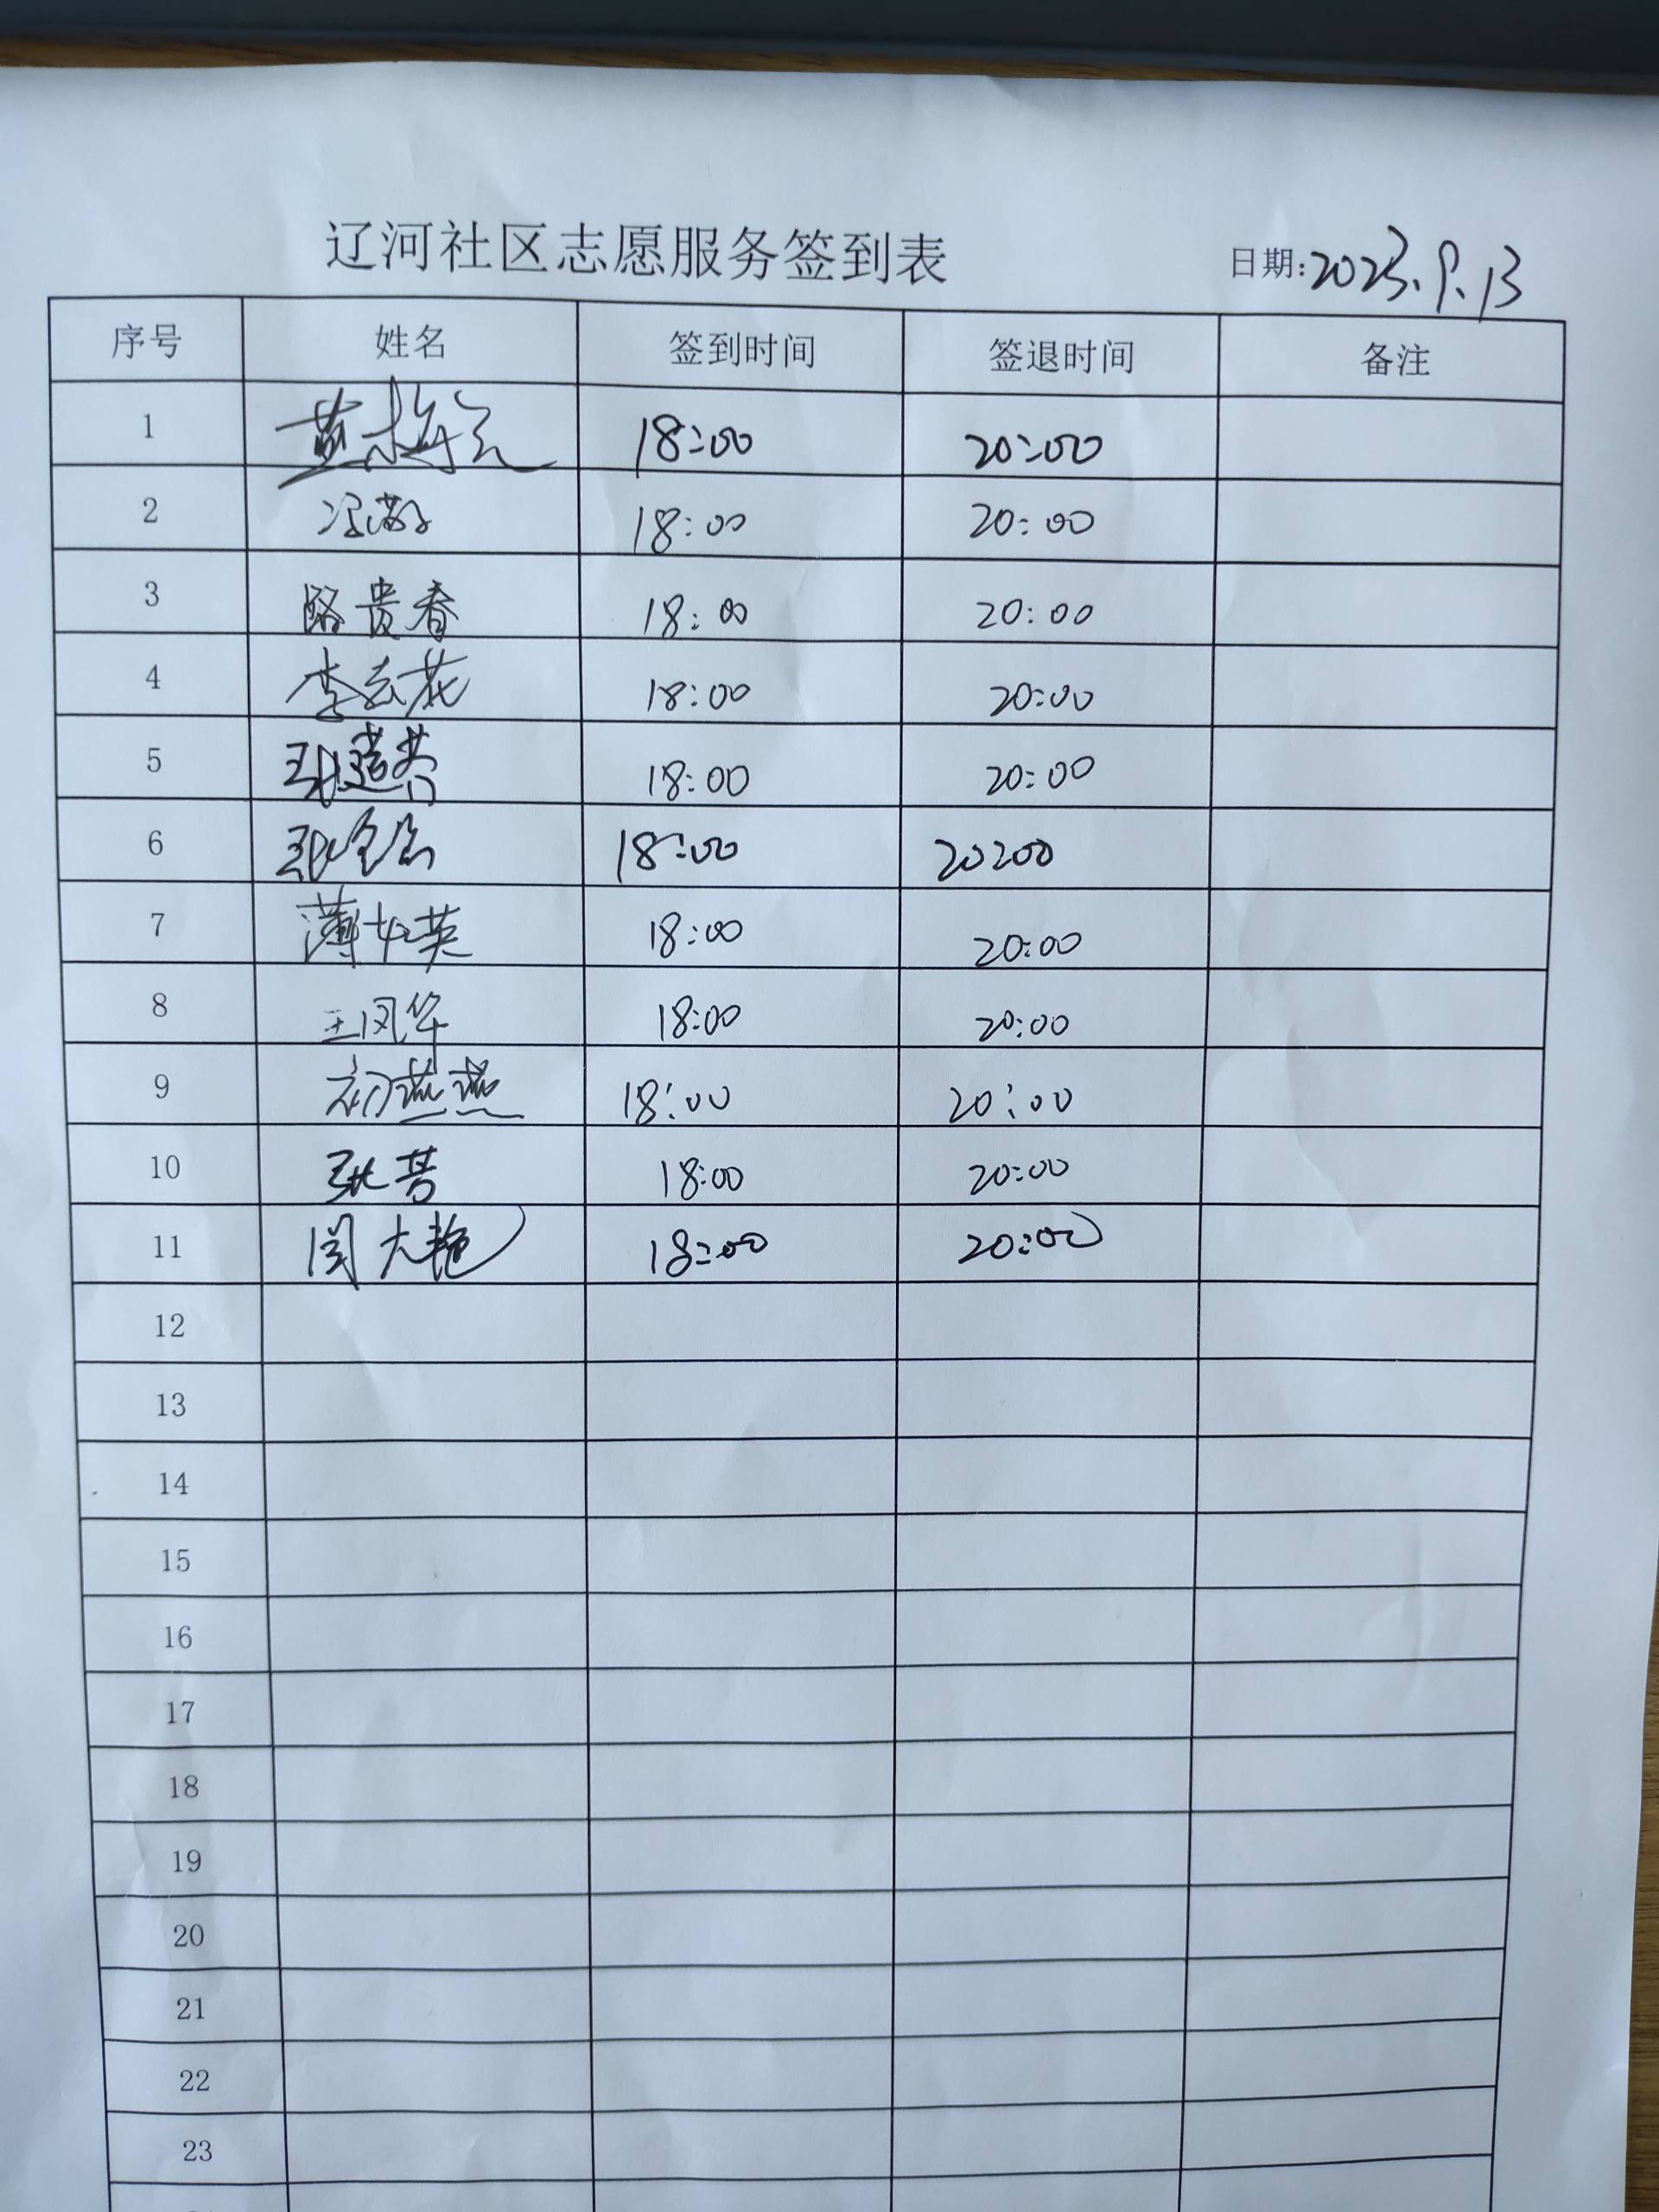 辽河社区志愿服务签到表 日期:2023.9.13
序号 姓名 签到时间 签退时间 备注
1 18:00 20:00
2 18:00 20:00
3 骆贵春 18:00 20:00
4 李云花 18:00 20:00
5 18:00 20:00
6 18:00 20:00
7 薄女英 18:00 20:00
8 王凤华 18:00 20:00
9 初燕燕 18:00 20:00
10 张芳 18:00 20:00
11 闫大艳 18:00 20:00
12
13
14
15
16
17
18
19
20
21
22
23